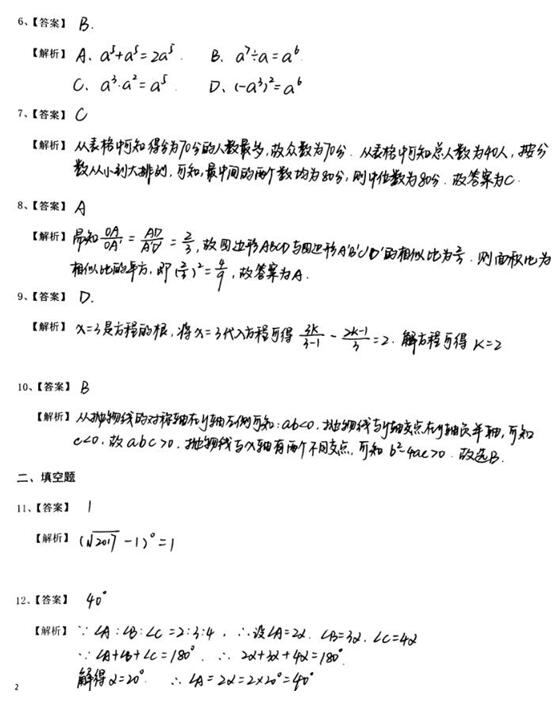 6、【答案】 B.
【解析】 A、a⁵+a⁵=2a⁵. B、a⁷÷a=a⁶.
C、a³·a²=a⁵ D、(-a³)²=a⁶
7、【答案】 C
【解析】 从表格中可知得分为70分的人数最多,故众数为70分. 从表格中可知总人数为40人,按分
数从小到大排列,可知,最中间的两个数均为80分,则中位数为80分. 故答案为C.
8、【答案】 A
【解析】 易知 OA/OA' = AD/A'D' = 2/3, 故四边形ABCD与四边形A'B'C'D'的相似比为2/3. 则面积比为
相似比的平方,即(2/3)²=4/9,故答案为A.
9、【答案】 D.
【解析】 x=3是方程的根,将x=3代入方程可得 3k/3-1 - 2k-1/3 =2. 解方程可得 k=2
10、【答案】 B
【解析】 从抛物线的对称轴在y轴左侧可知:ab<0. 抛物线与y轴交点在y轴负半轴,可知
c<0. 故abc>0. 抛物线与x轴有两个不同交点,可知 b²-4ac>0. 故选B.
二、填空题
11、【答案】 1
【解析】 (√2017 -1)⁰=1
12、【答案】 40°
【解析】 ∵∠A:∠B:∠C=2:3:4, ∴设∠A=2x. ∠B=3x. ∠C=4x
∵∠A+∠B+∠C=180°. ∴2x+3x+4x=180°.
解得x=20°. ∴∠A=2x=2×20°=40°
2